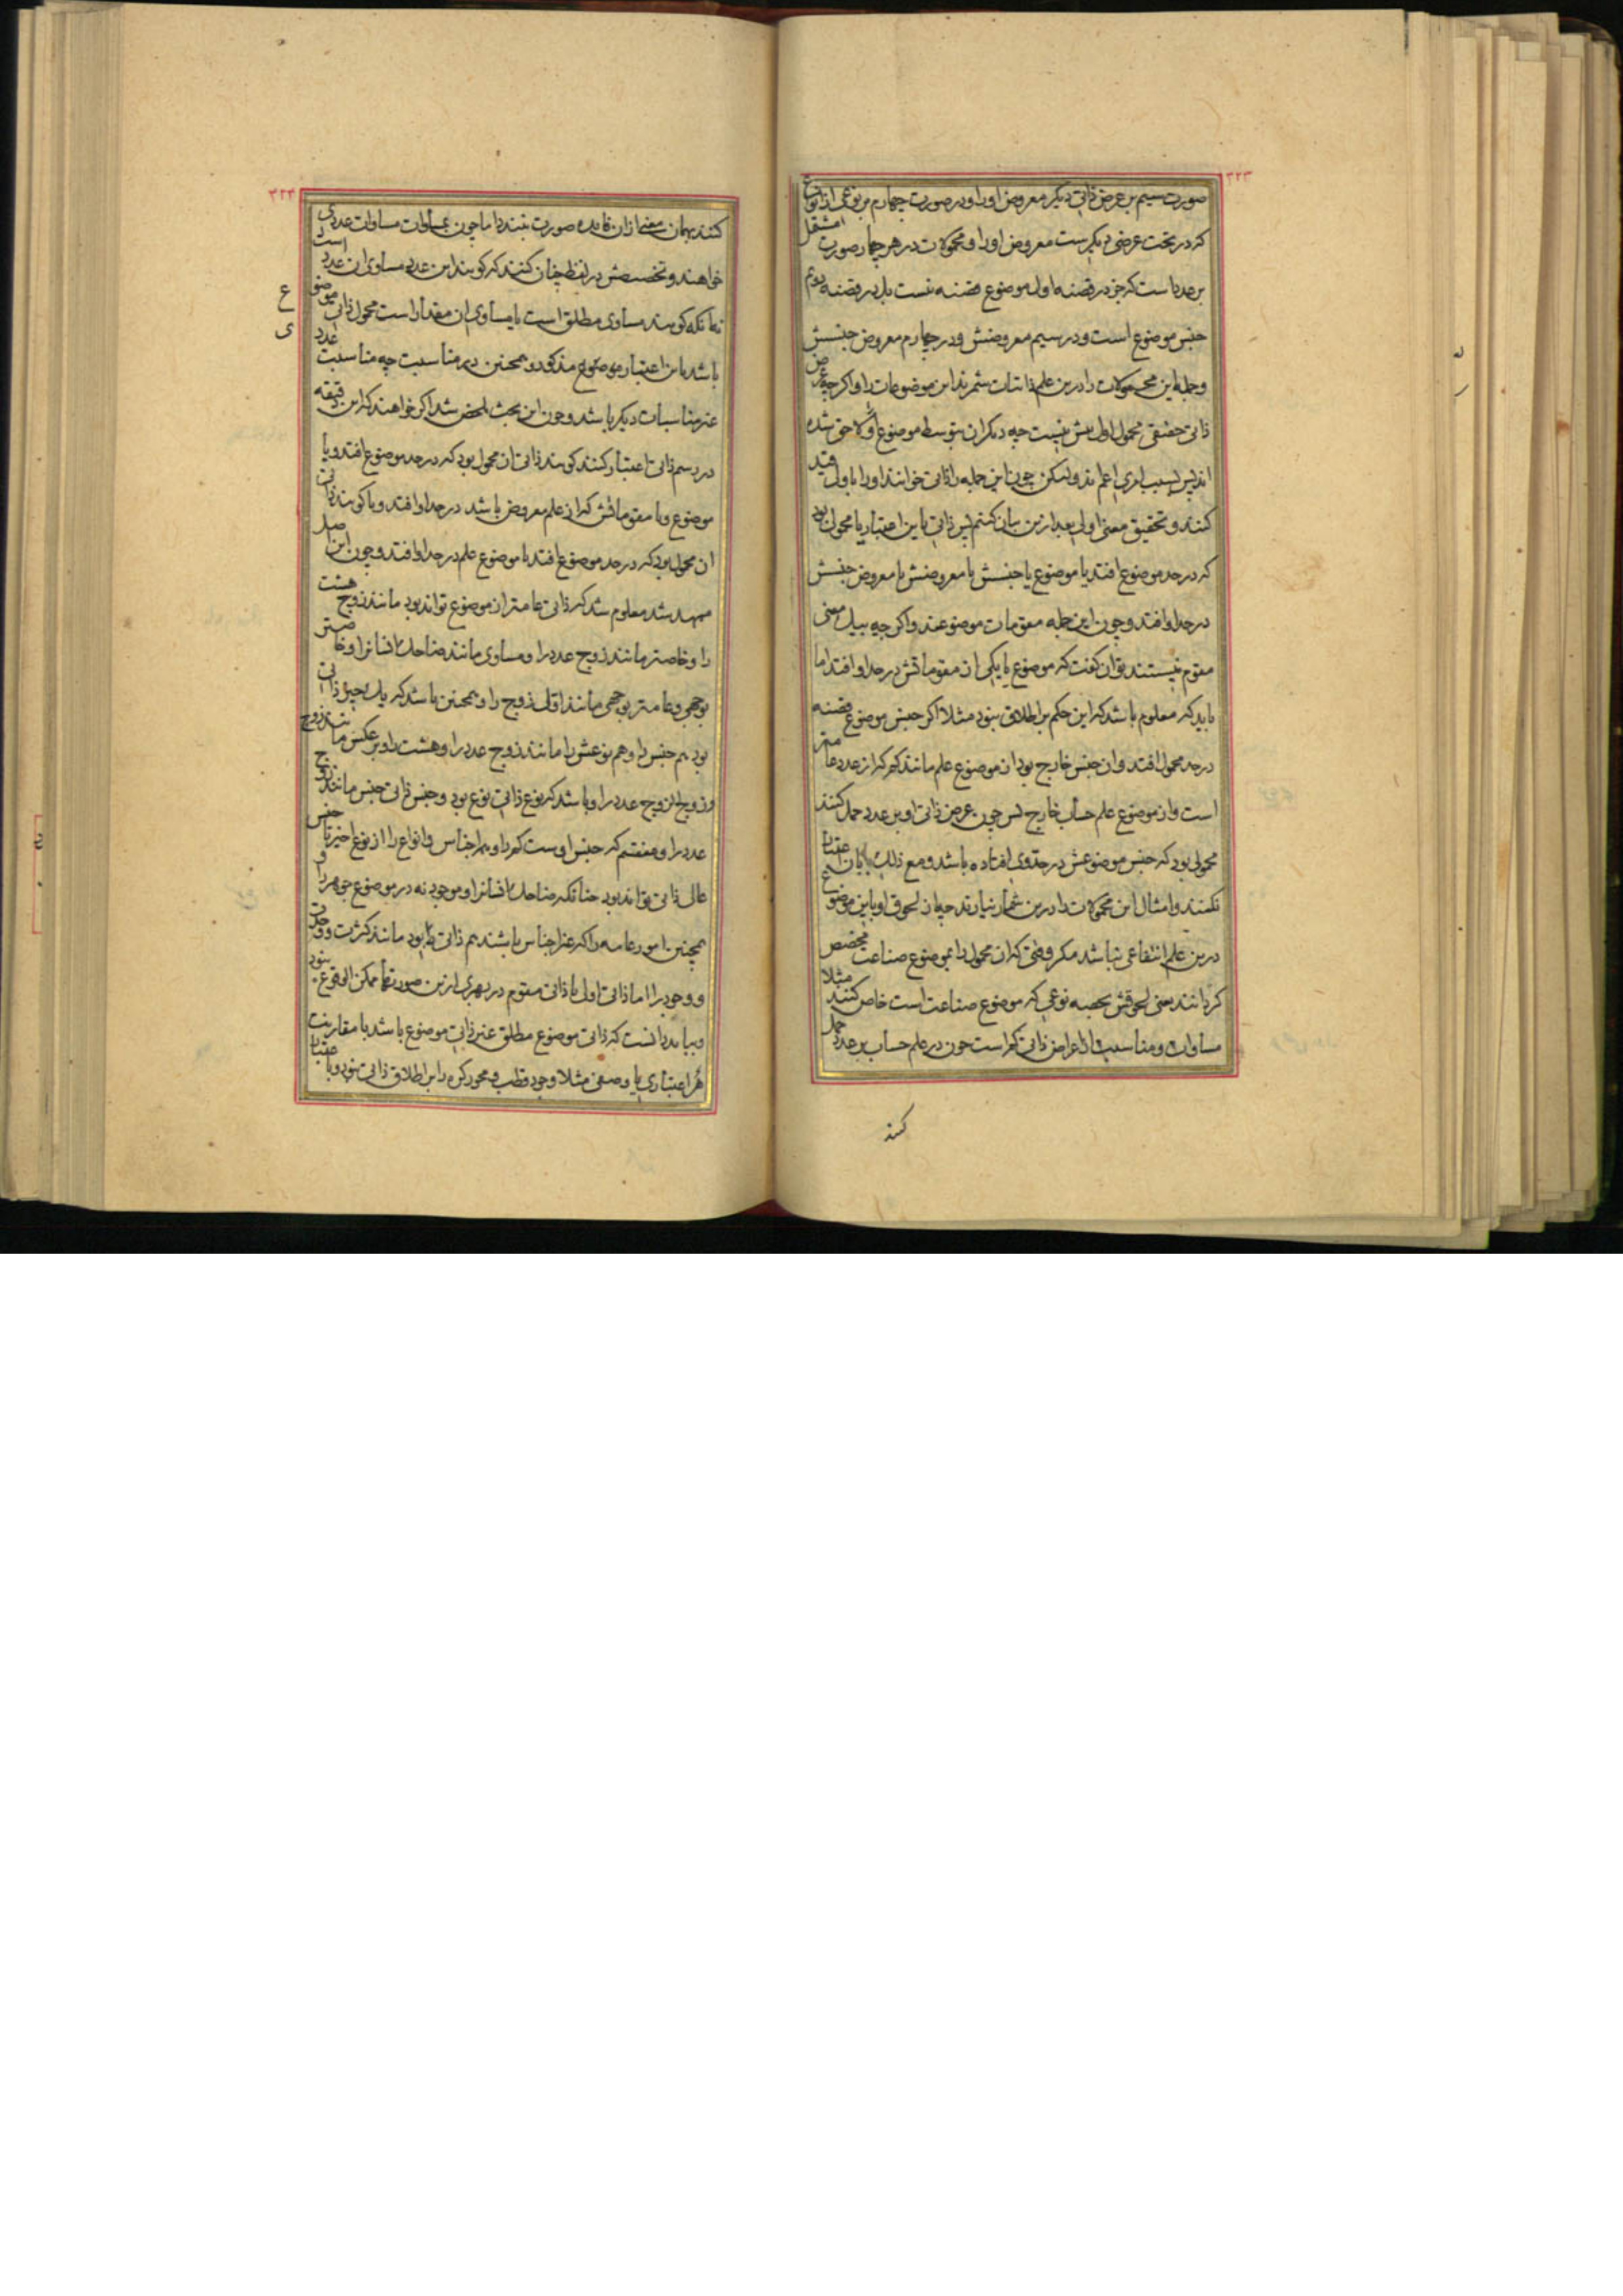 ۳۲۳
صورت سیم بر عرض ذاتی دیگر معروض او را و در صورت چهارم بر نوعی از انواع
که در تحت عرضی دیگرست معروض او را و محمولات در هر چهار صورت مشتمل
بر حدیاست که جز در قضیه اول موضوع قضیه نیست بل در قضیه دوم
جنس موضوع است و در سیم معروضش و در چهارم معروض جنسش
و جمله این محمولات را درین علم ذاتیات شمرند این موضوعات را و اگرچه عرض
ذاتی حقیقی محمول اول بیش نیست چه دیگران بتوسط موضوع اولا لاحق شده
اند پس بسبب امری اعم اند ولیکن چون این جمله را ذاتی خوانند او را باول قید
کنند و تحقیق معنی اولی بعد ازین بیان کنیم پس ذاتی باین اعتبار یا محمولی بود
که در حد موضوع افتد یا موضوع یا جنسش یا معروضش یا معروض جنسش
در حد او افتد و چون این جمله مقومات موضوعند و اگرچه ببیل معنی
مقوم نیستند توان گفت که موضوع یا یکی از مقوماتش در حد او افتد اما
باید که معلوم باشد که این حکم بر اطلاق نبود مثلا اگر جنس موضوع قضیه
در حد محمول افتد و ان جنس خارج بود از موضوع علم مانند کم که از عدد عامتر
است و از موضوع علم حساب خارج پس چون عرض ذاتی او بر عدد حمل کنند
محمولی بود که جنس موضوعش در حد وی افتاده باشد و مع ذلک بان اعتبار
نکنند و امثال این محمولات را درین علم شمار نیارند چه از لحوق او باین موضوع
درین علم انتفاعی نباشد مگر وقتی که ان محمول را بموضوع صناعت مخصص
گردانند یعنی لحوقش بحصه نوعی که موضوع صناعت است خاص کنند مثلا
مساوات و مناسبت از اعراض ذاتی کم است چون در علم حساب بر عدد حمل
کنند
۳۲۴
کنند بهمان معنی ازان فایده صورت نبندد اما چون بمساوات مساوات عددی
خواهند و تخصیصش در لفظ چنان کنند که گویند این عدد مساوی ان عدد است
نه انکه گویند مساوی مطلق است یا مساوی ان مقدار است محمول ذاتی موضوع
باشد باین اعتبار موضوع مذکور و همچنین در مناسبت چه مناسبت عدد
غیر مناسبات دیگر باشد و چون این بحث ملخص شد اگر خواهند که این دقیقه
در رسم ذاتی اعتبار کنند گویند ذاتی ان محمول بود که در حد موضوع افتد و یا
موضوع و یا مقوماتش که ازان علم معروض باشد در حد او افتد و یا گویند ذاتی
ان محمول بود که در حد موضوع افتد یا موضوع علم در حد او افتد و چون این اصل
ممهد شد معلوم شد که ذاتی عامتر از موضوع تواند بود مانند زوج هشت
را و خاصتر مانند زوج عدد را و مساوی مانند ضاحک انسان را و خاصتر
بوجهی و عامتر بوجهی مانند اقل زوج را و همچنین باشد که یک چیز ذاتی
بود هم جنس را و هم نوعش را مانند زوج عدد را و هشت را و بر عکس مانند زوج
و زوج الزوج عدد را و باشد که نوع ذاتی نوع بود و جنس ذاتی جنس مانند زوج
عدد را و منقسم که جنس اوست کم را و هم اجناس و انواع را از نوع اخیر تا جنس
عالی ذاتی تواند بود چنانکه ضاحک انسان را و موجود نه در موضوع جوهر را و
همچنین امور عامه را که غیر اجناس باشند هم ذاتی بود مانند کثرت و وحدت
و وجود را اما ذاتی اولی یا ذاتی مقوم در بهری ازین صورتها ممکن الوقوع نبود
و بباید دانست که ذاتی موضوع مطلق غیر ذاتی موضوع باشد با مقارنت
هر اعتباری یا وصفی مثلا وجود قطب و محور کره را بر اطلاق ذاتی نبود و با اعتبار
ع
ی